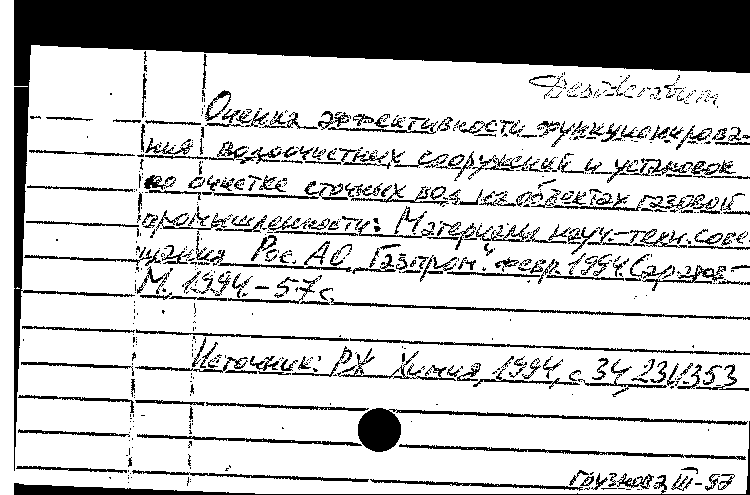 Desideratum
Оценка эффективности функционирова-
ния водоочистных сооружений и установок
по очистке сточных вод на объектах газовой
промышленности: Материалы науч.-техн. сове-
щания Рос. АО "Газпром", февр. 1994, Саратов-
М, 1994.-57с
Источник: РЖ Химия, 1994, с 34, 23И353
Грузнова, III-97